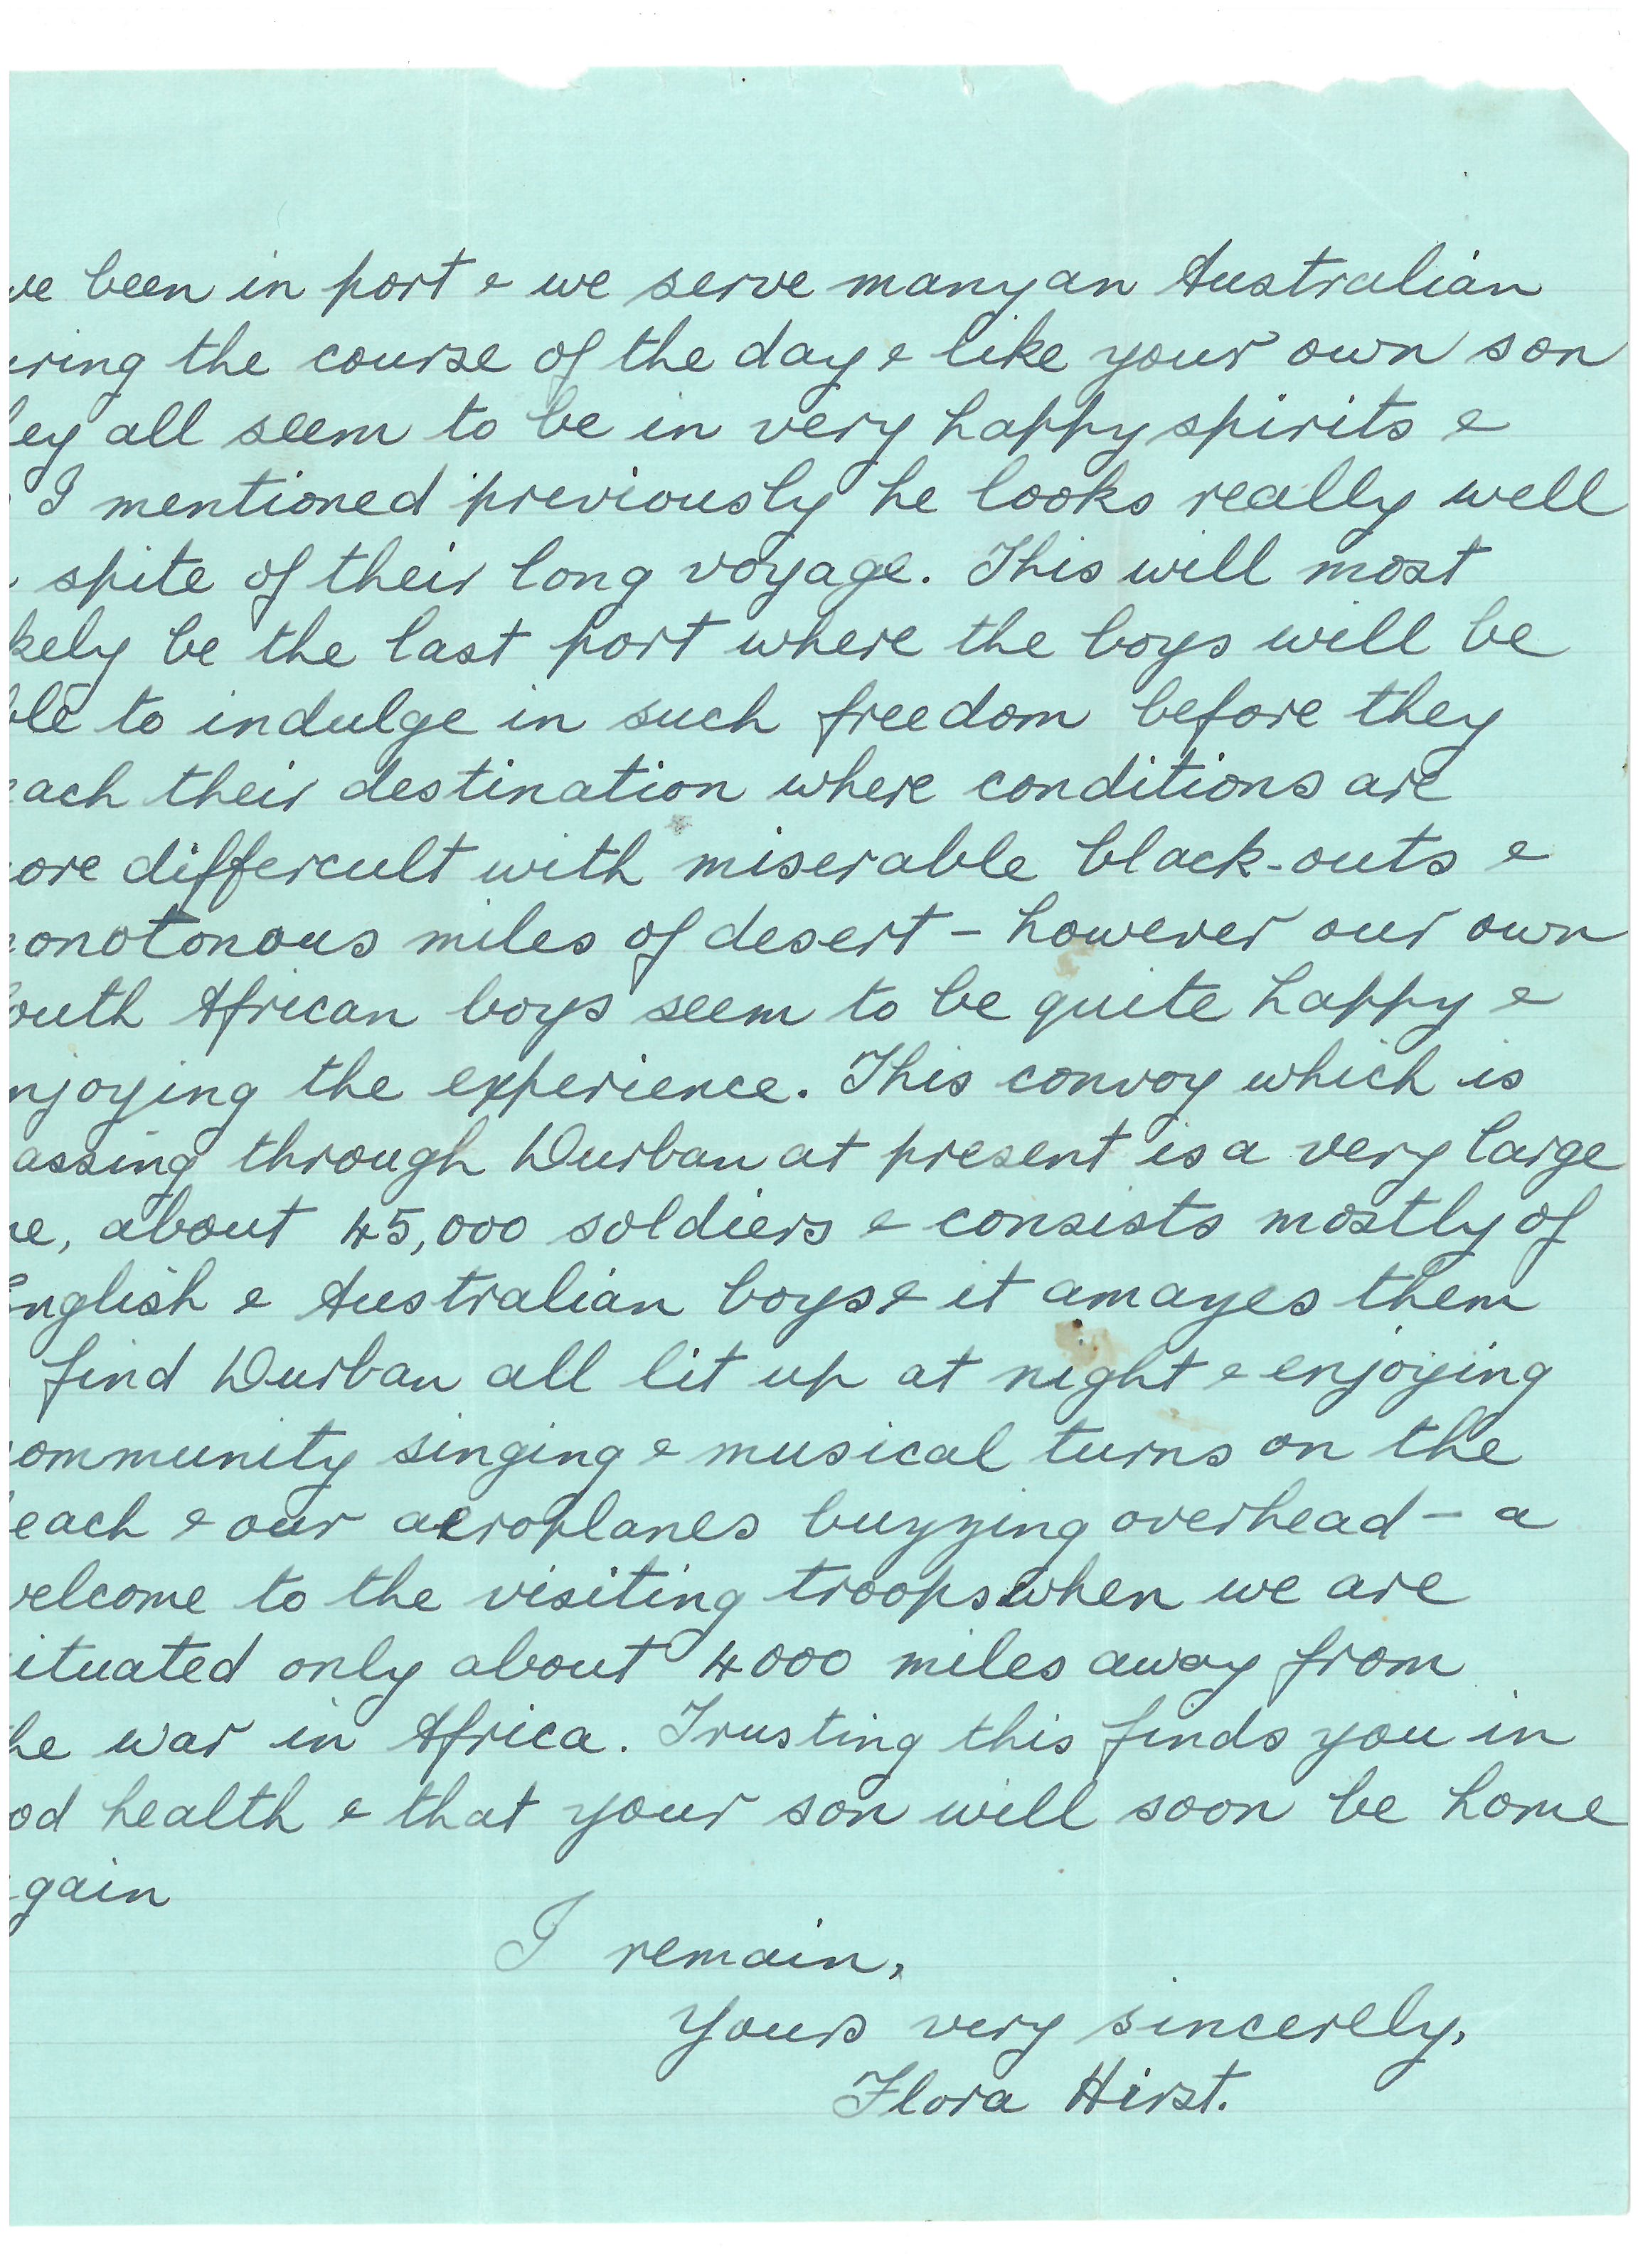 ve been in port & we serve many an Australian
ring the course of the day & like your own son
ey all seem to be in very happy spirits &
I mentioned previously he looks really well
spite of their long voyage. This will most
kely be the last port where the boys will be
ble to indulge in such freedom before they
each their destination where conditions are
ore differcult with miserable black-outs &
onotonous miles of desert – however our own
outh African boys seem to be quite happy &
njoying the experience. This convoy which is
assing through Durban at present is a very large
ne, about 45,000 soldiers & consists mostly of
English & Australian boys & it amazes them
find Durban all lit up at night & enjoying
ommunity singing & musical turns on the
each & our aeroplanes buzzing overhead – a
welcome to the visiting troops when we are
ituated only about 4000 miles away from
he war in Africa. Trusting this finds you in
od health & that your son will soon be home
gain
I remain,
Yours very sincerely,
Flora Hirst.